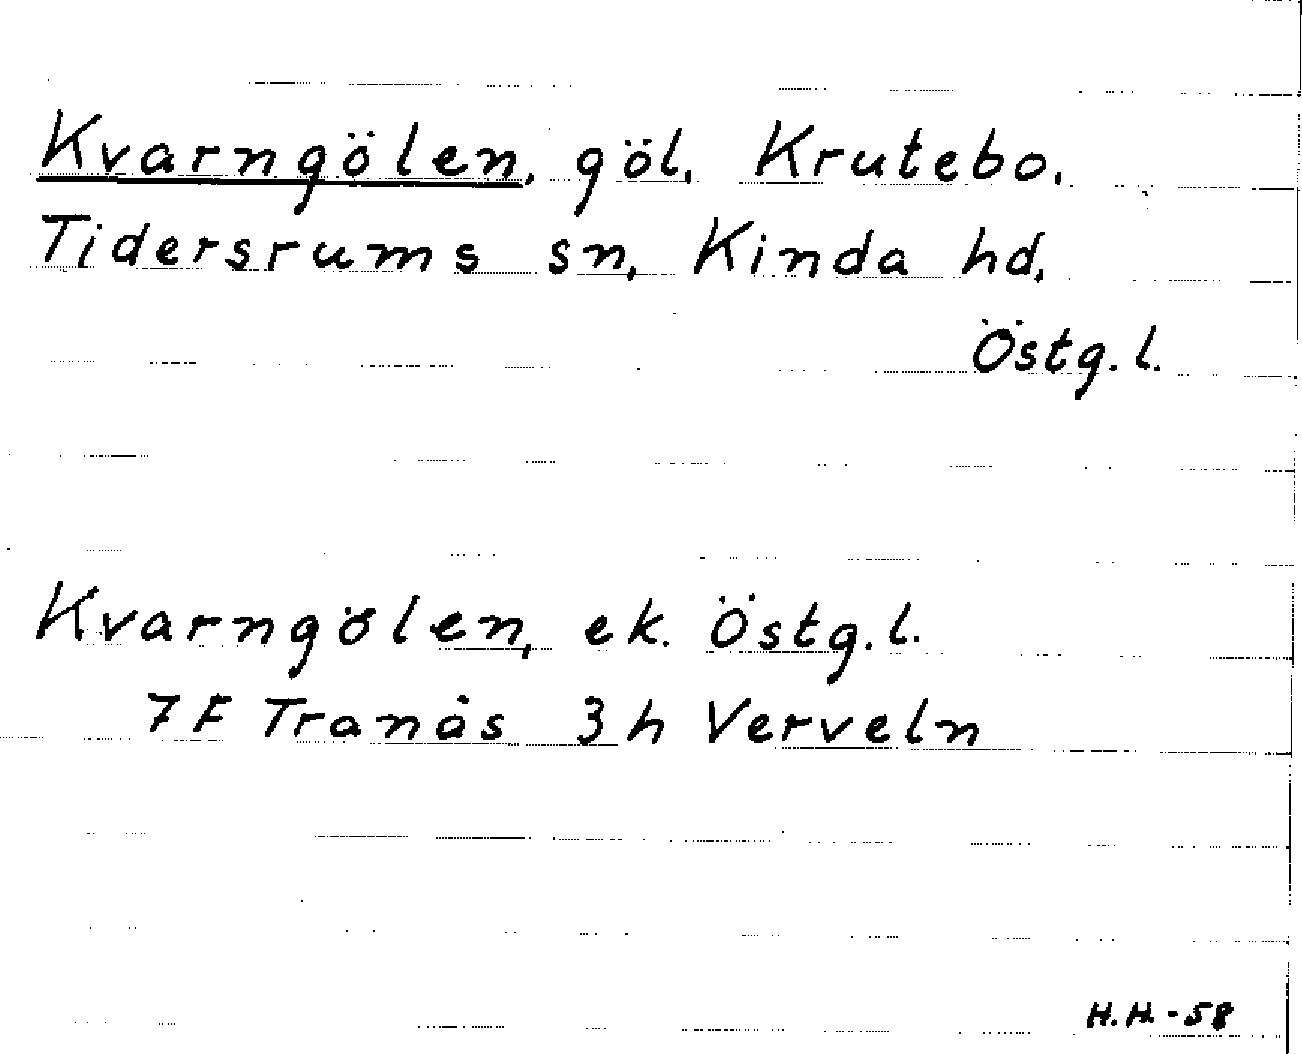 Kvarngölen, göl, Krutebo,
Tidersrums sn, Kinda hd,
Östg. l.
Kvarngölen, ek. Östg. l.
7 F Tranås 3 h Verveln
H.H. - 58